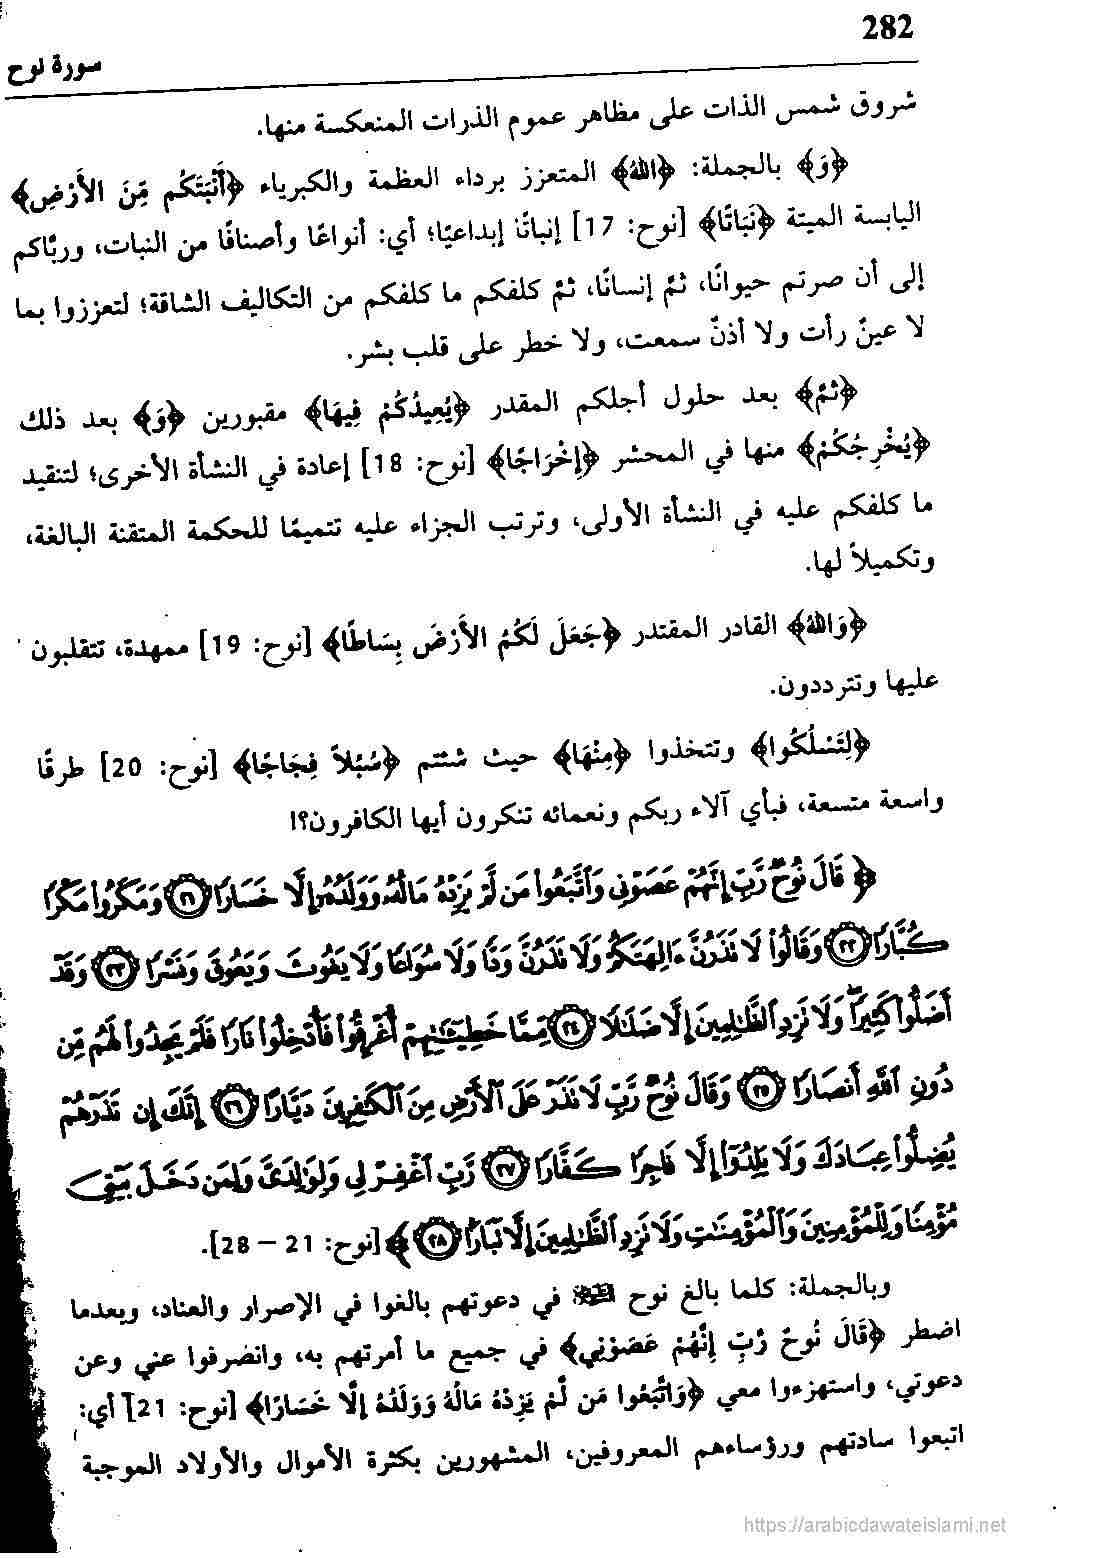 282
سورة نوح
شروق شمس الذات على مظاهر عموم الذرات المنعكسة منها.
﴿وَ﴾ بالجملة: ﴿اللهُ﴾ المتعزز برداء العظمة والكبرياء ﴿أَنْبَتَكُم مِّنَ الأَرْضِ﴾
اليابسة الميتة ﴿نَبَاتًا﴾ [نوح: 17] إنباتًا إبداعيًا؛ أي: أنواعًا وأصنافًا من النبات، وربَّاكم
إلى أن صرتم حيوانًا، ثمَّ إنسانًا، ثمَّ كلفكم ما كلفكم من التكاليف الشاقة؛ لتعززوا بما
لا عينٌ رأت ولا أذنٌ سمعت، ولا خطر على قلب بشر.
﴿ثمَّ﴾ بعد حلول أجلكم المقدر ﴿يُعِيدُكُمْ فِيهَا﴾ مقبورين ﴿وَ﴾ بعد ذلك
﴿يُخْرِجُكُمْ﴾ منها في المحشر ﴿إِخْرَاجًا﴾ [نوح: 18] إعادة في النشأة الأخرى؛ لتنقيد
ما كلفكم عليه في النشأة الأولى، وترتب الجزاء عليه تتميمًا للحكمة المتقنة البالغة،
وتكميلاً لها.
﴿وَاللهُ﴾ القادر المقتدر ﴿جَعَلَ لَكُمُ الأَرْضَ بِسَاطًا﴾ [نوح: 19] ممهدة، تتقلبون
عليها وتترددون.
﴿لِتَسْلُكُوا﴾ وتتخذوا ﴿مِنْهَا﴾ حيث شئتم ﴿سُبُلاً فِجَاجًا﴾ [نوح: 20] طرقًا
واسعة متسعة، فبأي آلاء ربكم ونعمائه تنكرون أيها الكافرون؟!
﴿ قَالَ نُوحٌ رَّبِّ إِنَّهُمْ عَصَوْنِي وَاتَّبَعُوا مَن لَّمْ يَزِدْهُ مَالُهُ وَوَلَدُهُ إِلَّا خَسَارًا ۝٢١ وَمَكَرُوا مَكْرًا
كُبَّارًا ۝٢٢ وَقَالُوا لَا تَذَرُنَّ ءَالِهَتَكُمْ وَلَا تَذَرُنَّ وَدًّا وَلَا سُوَاعًا وَلَا يَغُوثَ وَيَعُوقَ وَنَسْرًا ۝٢٣ وَقَدْ
أَضَلُّوا كَثِيرًا وَلَا تَزِدِ الظَّالِمِينَ إِلَّا ضَلَالًا ۝٢٤ مِّمَّا خَطِيئَاتِهِمْ أُغْرِقُوا فَأُدْخِلُوا نَارًا فَلَمْ يَجِدُوا لَهُم مِّن
دُونِ اللَّهِ أَنصَارًا ۝٢٥ وَقَالَ نُوحٌ رَّبِّ لَا تَذَرْ عَلَى الْأَرْضِ مِنَ الْكَافِرِينَ دَيَّارًا ۝٢٦ إِنَّكَ إِن تَذَرْهُمْ
يُضِلُّوا عِبَادَكَ وَلَا يَلِدُوا إِلَّا فَاجِرًا كَفَّارًا ۝٢٧ رَّبِّ اغْفِرْ لِي وَلِوَالِدَيَّ وَلِمَن دَخَلَ بَيْتِيَ
مُؤْمِنًا وَلِلْمُؤْمِنِينَ وَالْمُؤْمِنَاتِ وَلَا تَزِدِ الظَّالِمِينَ إِلَّا تَبَارًا ۝٢٨ ﴾ [نوح: 21 – 28].
وبالجملة: كلما بالغ نوح في دعوتهم بالغوا في الإصرار والعناد، وبعدما
اضطر ﴿قَالَ نُوحٌ رَّبِّ إِنَّهُمْ عَصَوْنِي﴾ في جميع ما أمرتهم به، وانصرفوا عني وعن
دعوتي، واستهزءوا معي ﴿وَاتَّبَعُوا مَن لَّمْ يَزِدْهُ مَالُهُ وَوَلَدُهُ إِلَّا خَسَارًا﴾ [نوح: 21] أي:
اتبعوا سادتهم ورؤساءهم المعروفين، المشهورين بكثرة الأموال والأولاد الموجبة
https://arabicdawateislami.net